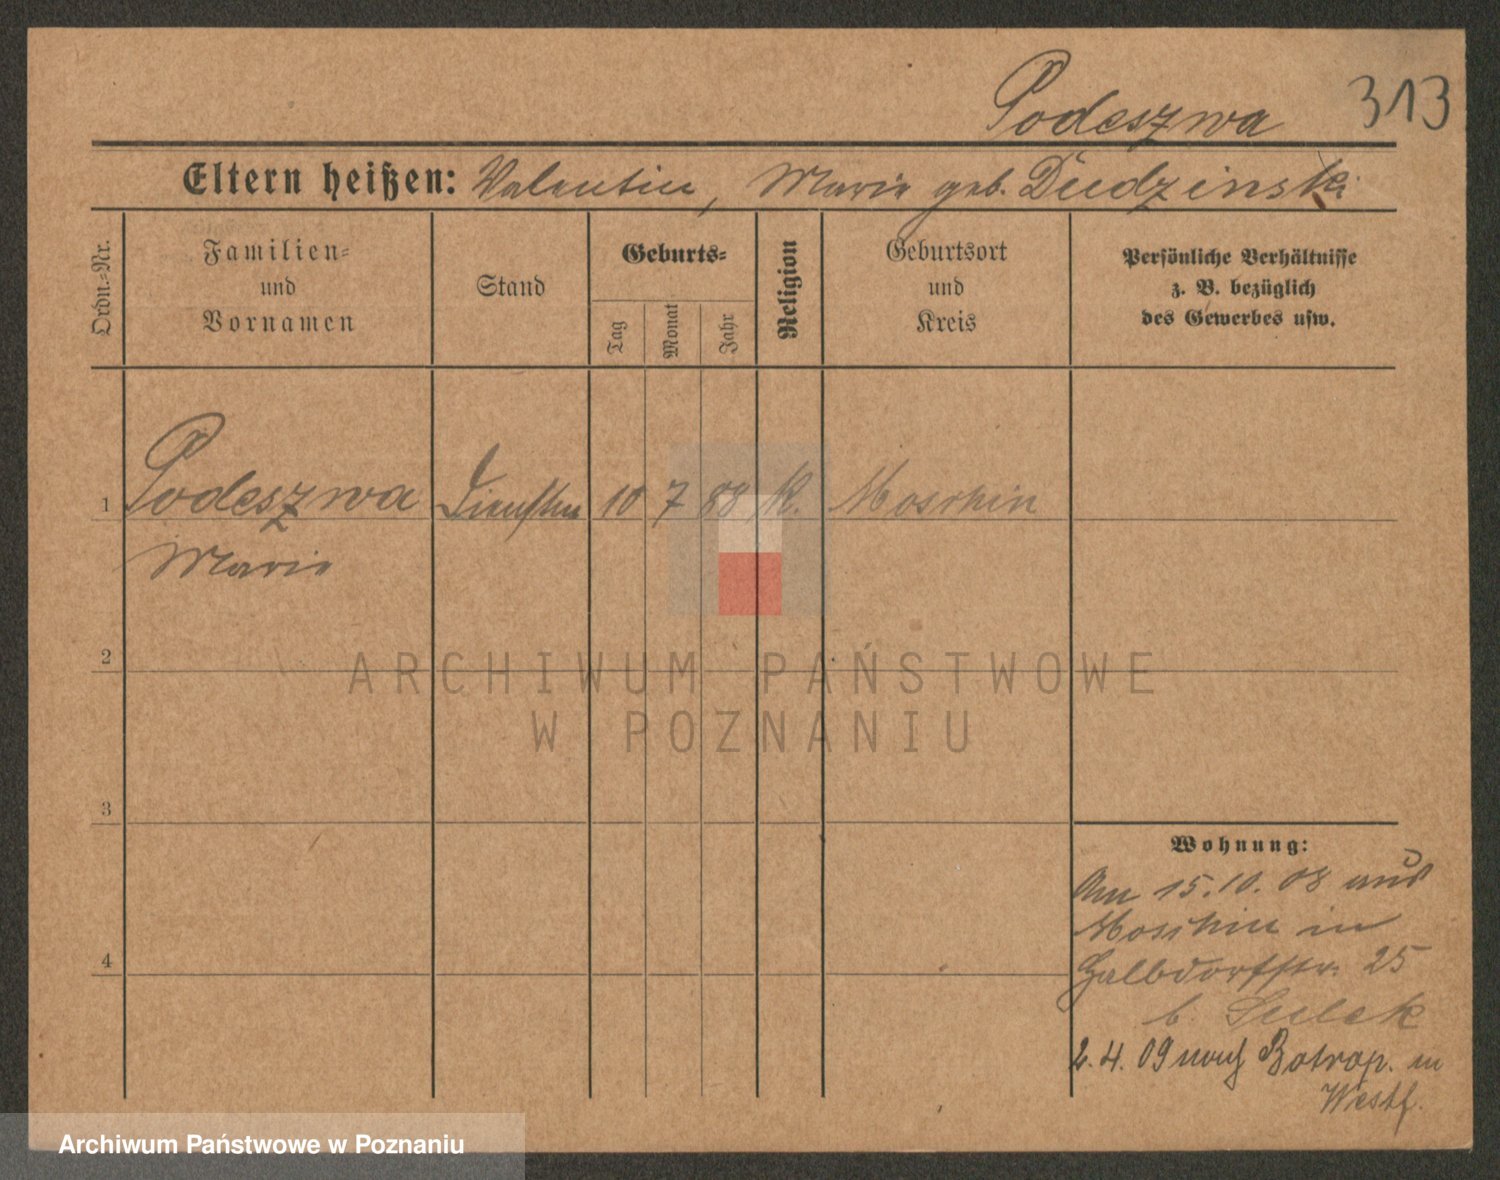 Podeszwa 313
Eltern heißen: Valentin, Marie geb. Dudzinski
Ordn.=Nr.
Familien=
und
Vornamen
Stand
Geburts=
Tag
Monat
Jahr
Religion
Geburtsort
und
Kreis
Persönliche Verhältnisse
z. B. bezüglich
des Gewerbes usw.
1 Podeszwa 10 7 88 K. Moschin
Marie
2
3
4
Wohnung:
Am 15.10.08 aus
Moschin in
Halbdorfstr. 25
b. Sulek
2.4.09 nach Botrop. in
Westf.
ARCHIWUM PAŃSTWOWE
W POZNANIU
Archiwum Państwowe w Poznaniu